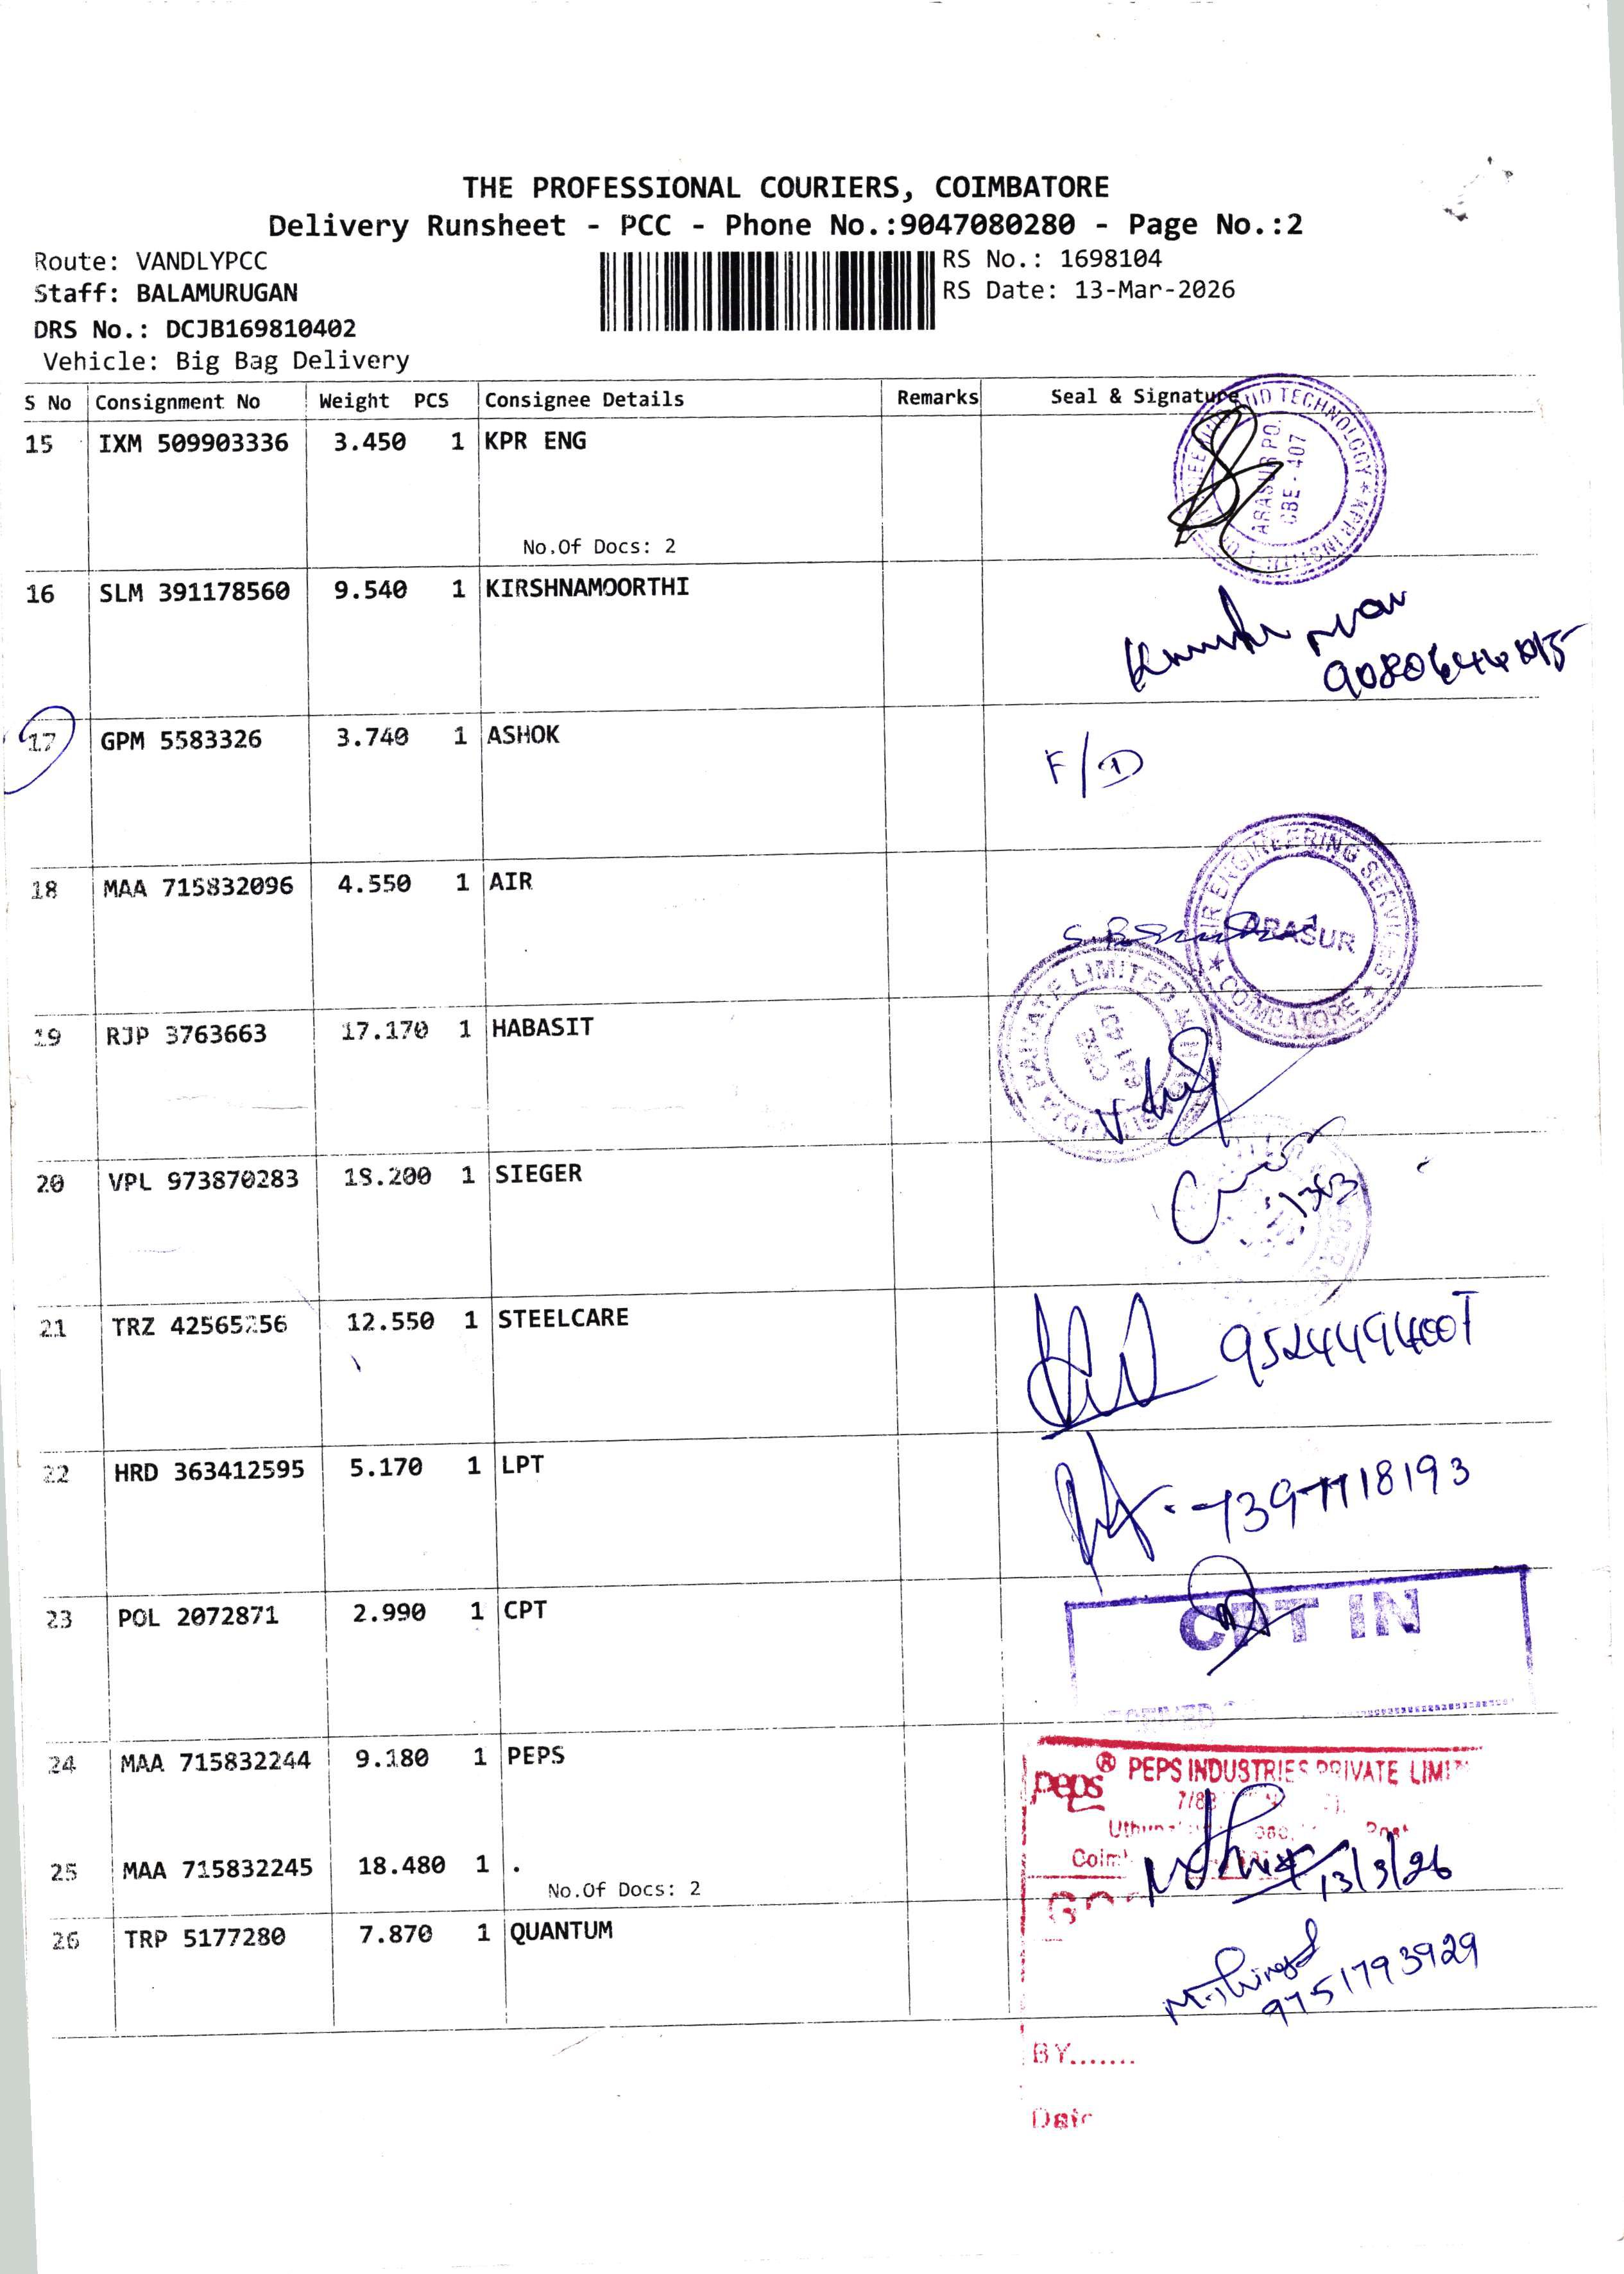 THE PROFESSIONAL COURIERS, COIMBATORE
Delivery Runsheet - PCC - Phone No.:9047080280 - Page No.:2
Route: VANDLYPCC
RS No.: 1698104
Staff: BALAMURUGAN
RS Date: 13-Mar-2026
DRS No.: DCJB169810402
Vehicle: Big Bag Delivery
S No Consignment No Weight PCS Consignee Details Remarks Seal & Signature
15 IXM 509903336 3.450 1 KPR ENG
ARASUR PO.
CBE - 407
No.Of Docs: 2
16 SLM 391178560 9.540 1 KIRSHNAMOORTHI
17 GPM 5583326 3.740 1 ASHOK
F/D
18 MAA 715832096 4.550 1 AIR
AIR ENGINEERING SERVICES
ARASUR
★ COIMBATORE ★
19 RJP 3763663 17.170 1 HABASIT
PRIVATE LIMITED
20 VPL 973870283 18.200 1 SIEGER
21 TRZ 42565256 12.550 1 STEELCARE
22 HRD 363412595 5.170 1 LPT
23 POL 2072871 2.990 1 CPT
CPT IN
24 MAA 715832244 9.180 1 PEPS
peps® PEPS INDUSTRIES PRIVATE
25 MAA 715832245 18.480 1 .
13/3/26
No.Of Docs: 2
26 TRP 5177280 7.870 1 QUANTUM
9751793929
BY.......